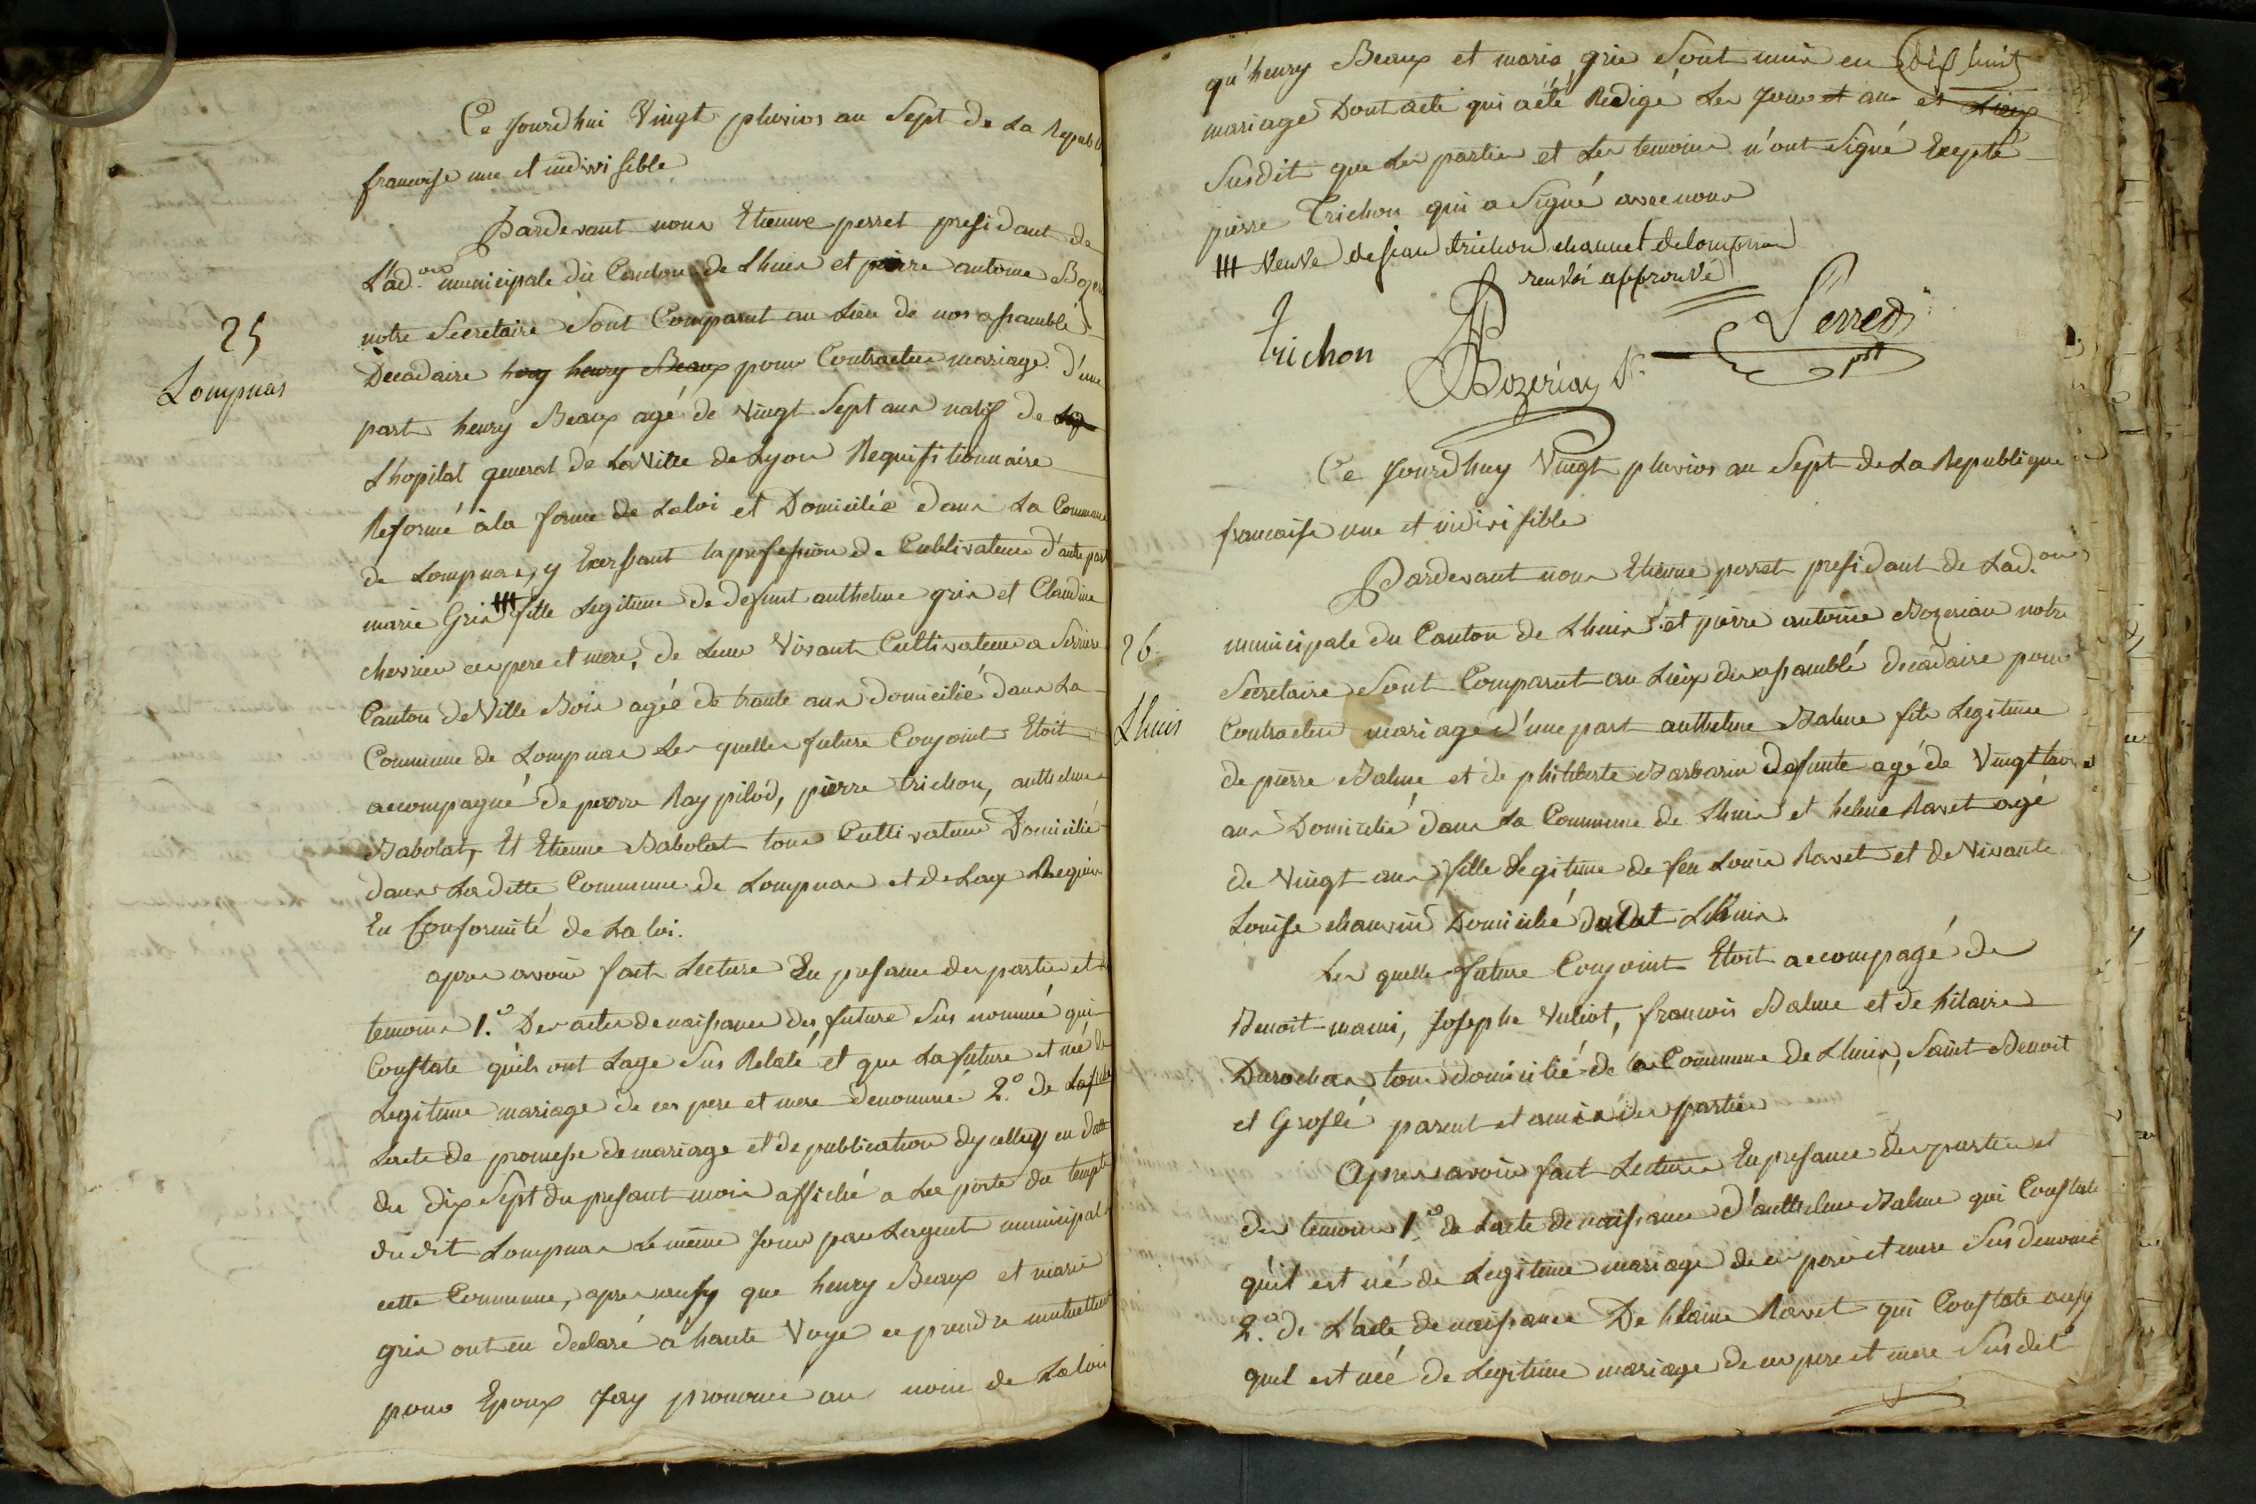 Ce Jourdhui Vingt pluvios an Sept de La Republ
francoise une et indivisible
Pardevant nous Etienne perret presidant de
L'ad.on municipale du Canton de Lhuis et pierre antoine Bozeri
notre Secretaire Sont Comparut au Lieu de nos assamblé
25
Lompnas
Decadaire henry henry Beaux pour Contracter mariage d'une
part henry Beaux agé de Vingt Sept ans natif de
Lhopital general de La Ville de Lyon Requisitionnaire
Reformé à la forme de Laloi et Domicilié dans La Commune
de Lompnas, y Exersant la profession de Cultivateur d'autre part
marie Gris ### fille Legitime de defunt anthelme gris et Claudine
chevrier ces pere et mere, de Leur Vivant Cultivateur a Serriere
Canton de Ville Bois agée de trante ans domicilié dans La
Commune de Lompnas Les quelles future Conjoint Etoit
accompagné de pierre Ray pilod, pierre trichon, anthelme
Babolat, Et Etienne Babolat tous Cultivateur Domicilié
dans Laditte Commune de Lompnas et de Lage Requis
En Conformité de La loi.
apres avoir fait Lecture En presance des parties et
temoins 1.o Des actes de naissance des future Sus nommé qui
Constate qu'ils ont Lage Sus Relaté et que La future et née de
Legitime mariage de ces pere et mere denommé 2.o de
Lacte de promesse de mariage et de publication dycelluy en datte
du dix Sept du presant mois affiché a La porte du temple
du dit Lompnas Le même Jour par Lagent municipal
cette Commune, apres aussy que henry Beaux et marie
gris ont eu declaré à haute Voye ce prendre mutuellement
pour Epoux Jay prononcé au nom de Laloi
qu'henry Beaux et marie gris Sont unis en dix huit
mariage Dont acte qui a été Redigé Les Jour et an et Lieux
Susdit que Les parties et Les temoins n'ont Signé Excepté
pierre Trichon qui a Signé avec nous
### Veuve de jean trichon channet de lompnas
renvoi approuvé
trichon
Bozerian Sr.
Perret
pdt
Ce Jourdhuy Vingt pluvios an Sept de La Republique
francaise une et indivisible
Pardevant nous Etienne perret presidant de Lad.on
municipale du Canton de Lhuis et pierre antoine Bozerian notre
26
Lhuis
Secretaire Sont Comparut au Lieux des assamblé decadaire pour
Contracter mariage d'une part anthelme Balme fils Legitime
de pierre Balme et de philiberte Barbarin defunte agé de Vingt trois
ans Domicilié dans La Commune de Lhuis et helene Ravet agé
de Vingt ans fille Legitime de feu Louis Ravet et de Vivante
Louise chauvin Domicilié dudit Lhuis.
Les quelles future Conjoint Etoit accompagé de
Benoit mami, Josephe Vuliot, francois Balme et de hilaire
Durochas tous domicilié de la Commune de Lhuis, Saint Benoit
et Groslé parent et amis des parties
Apres avoir fait Lecture En presance des parties et
des temoins 1.o de Lacte de naissance d'anthelme Balme qui Constate
qu'il est né de Legitime mariage de ces pere et mere Sus denomé
2.o de L'acte de naissance De helaine Ravet qui Constate ausy
quel est née de Legitime mariage de ces pere et mere Sus dit